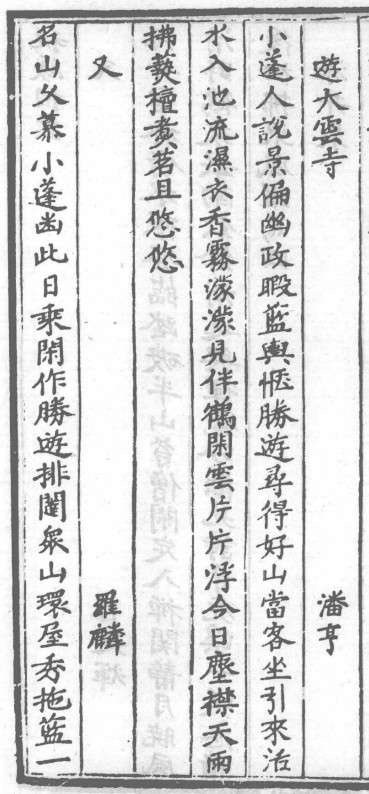 遊大雲寺　潘亨
小蓬人說景偏幽政暇藍輿愜勝遊尋得好山當客坐引來活
水入池流濕衣香霧濛濛見伴鶴閑雲片片浮今日塵襟天雨
拂爇檀煑茗且悠悠
又　羅麟
名山久慕小蓬幽此日乘閑作勝遊排闥衆山環屋秀拖藍一